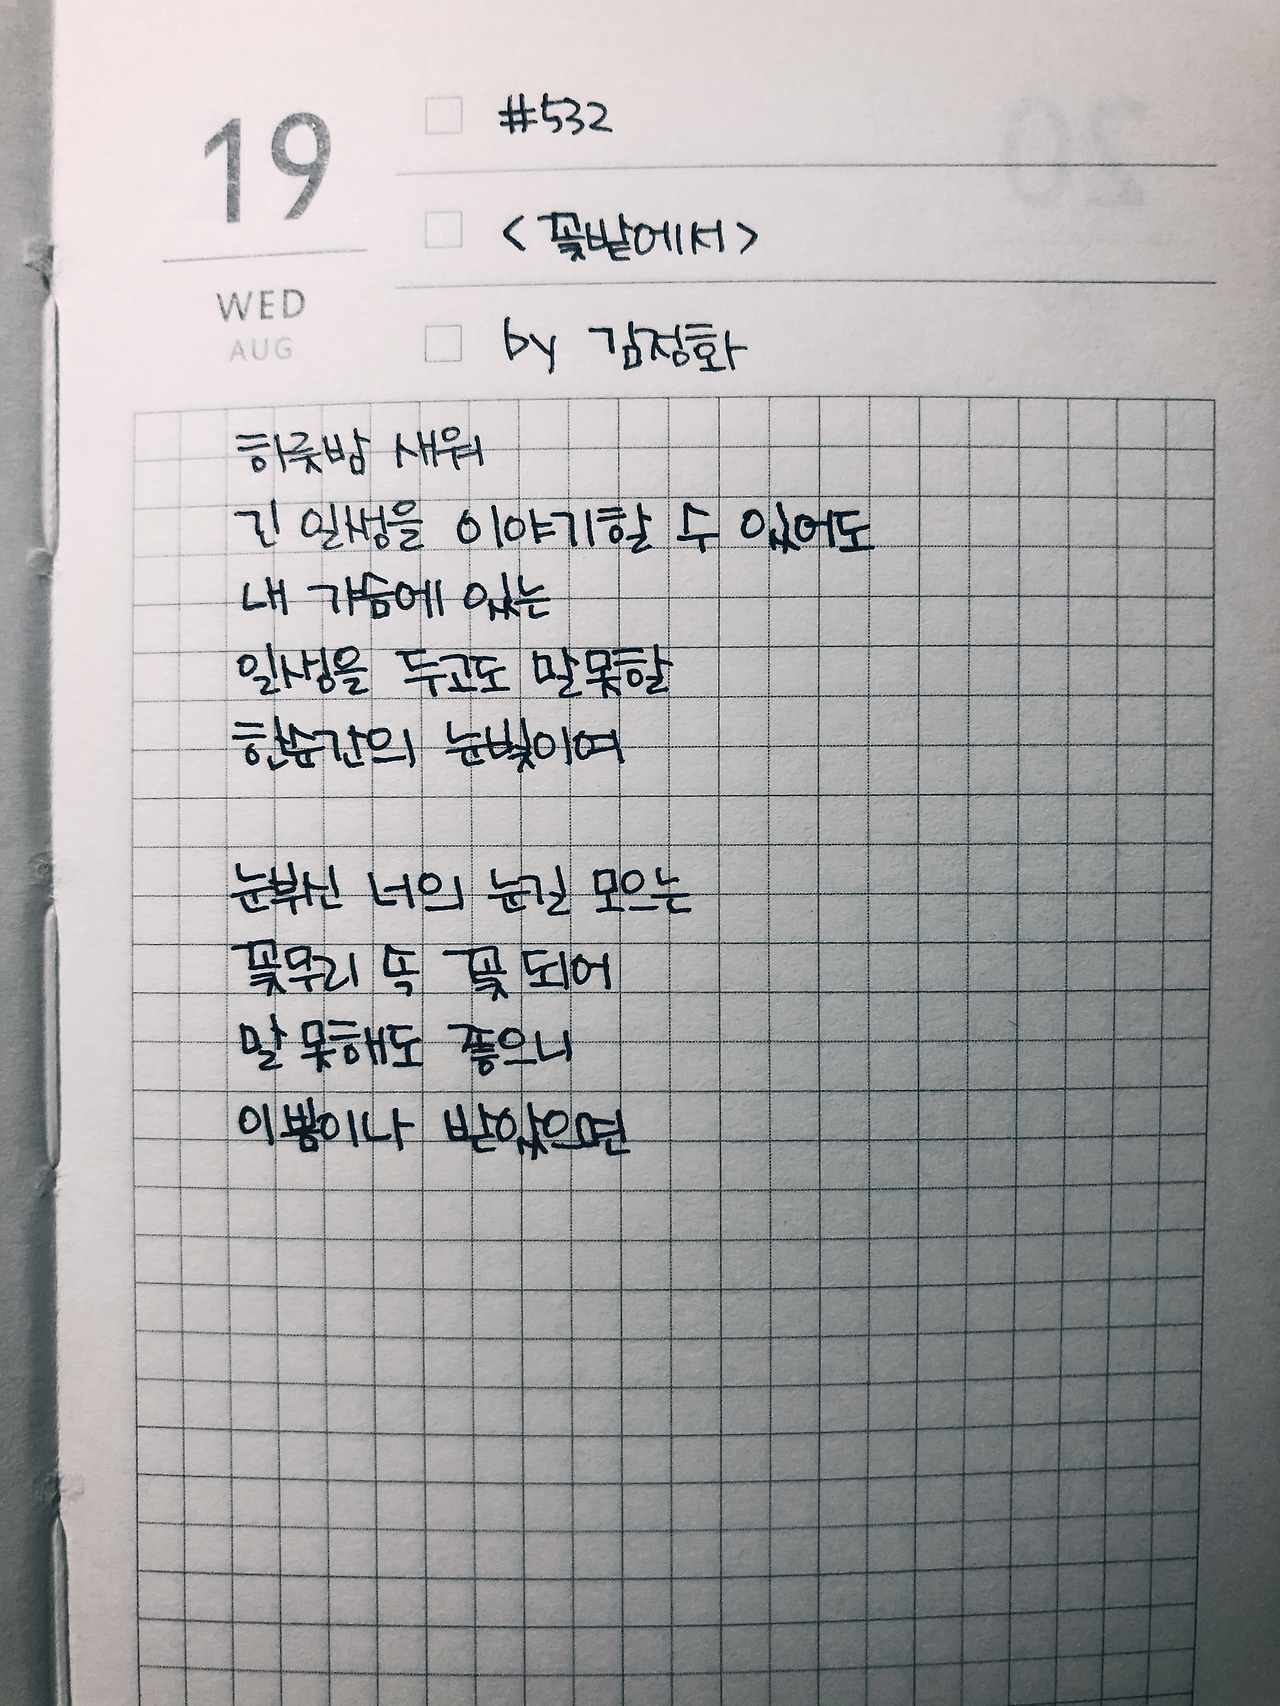 19
WED
AUG
#532
<꽃밭에서>
by 김정화
하룻밤 새워
긴 일생을 이야기할 수 있어도
내 가슴에 있는
일생을 두고도 말못할
한순간의 눈빛이여
눈부신 너의 눈길 모으는
꽃무리 속 꽃 되어
말 못해도 좋으니
이쁨이나 받았으면
20